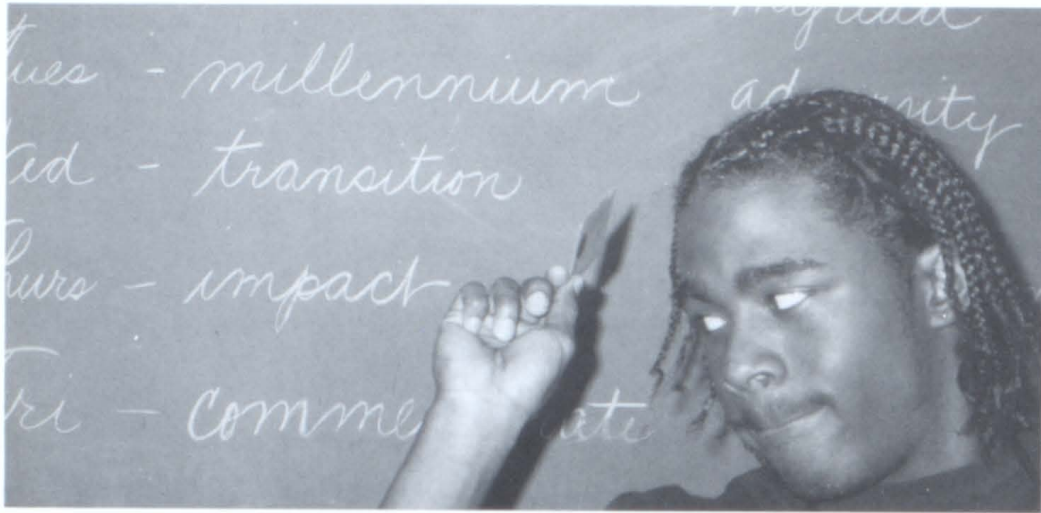 myriad
ues - millennium adversity
ed - transition
hurs - impact
Fri - comme ate